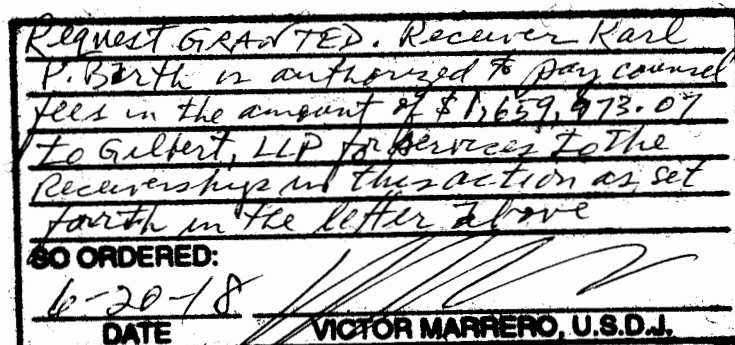 Request GRANTED. Receiver Karl
P. Barth is authorized to pay counsel
fees in the amount of $1,659,973.07
to Gilbert, LLP for services to the
Receivership in this action as set
forth in the letter above
SO ORDERED:
6-20-18
DATE VICTOR MARRERO, U.S.D.J.